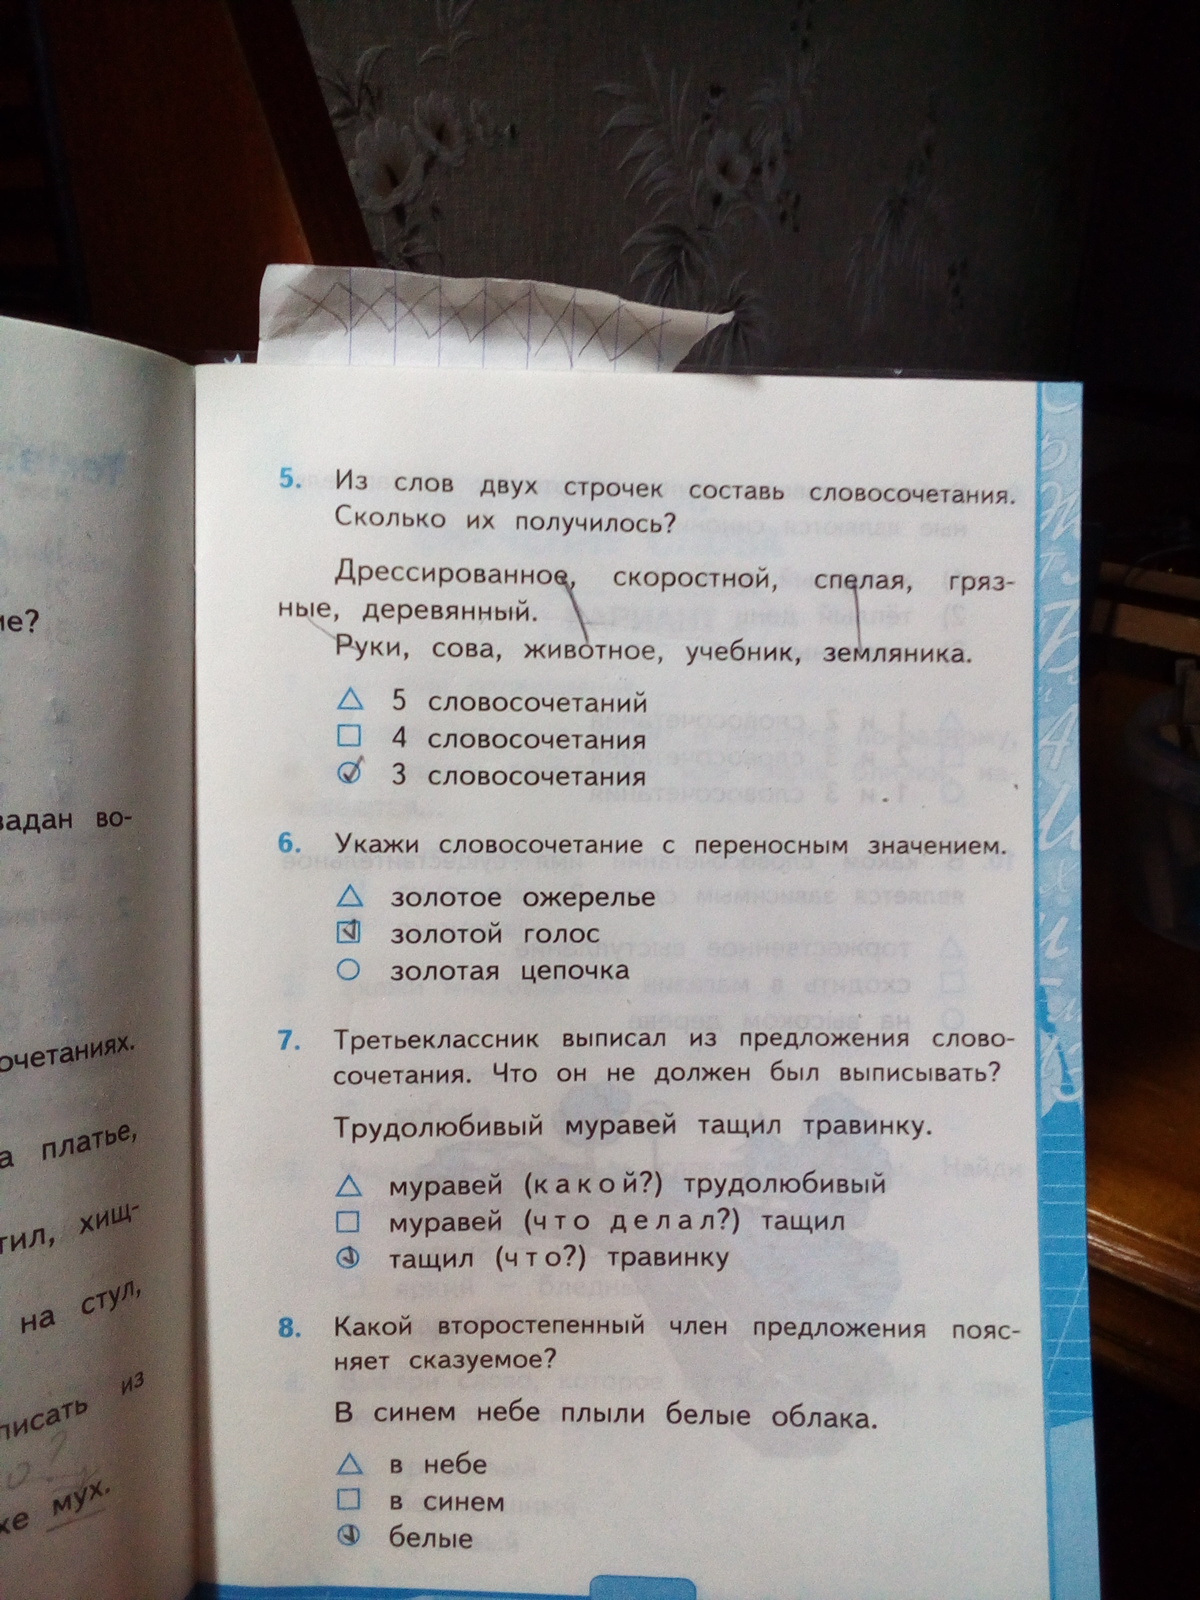 5. Из слов двух строчек составь словосочетания.
Сколько их получилось?
Дрессированное, скоростной, спелая, гряз-
ные, деревянный.
Руки, сова, животное, учебник, земляника.
5 словосочетаний
4 словосочетания
3 словосочетания
6. Укажи словосочетание с переносным значением.
золотое ожерелье
золотой голос
золотая цепочка
7. Третьеклассник выписал из предложения слово-
сочетания. Что он не должен был выписывать?
Трудолюбивый муравей тащил травинку.
муравей (какой?) трудолюбивый
муравей (что делал?) тащил
тащил (что?) травинку
8. Какой второстепенный член предложения пояс-
няет сказуемое?
В синем небе плыли белые облака.
в небе
в синем
белые
ие?
задан во-
очетаниях.
а платье,
тил, хищ-
на стул,
писать из
хе мух.